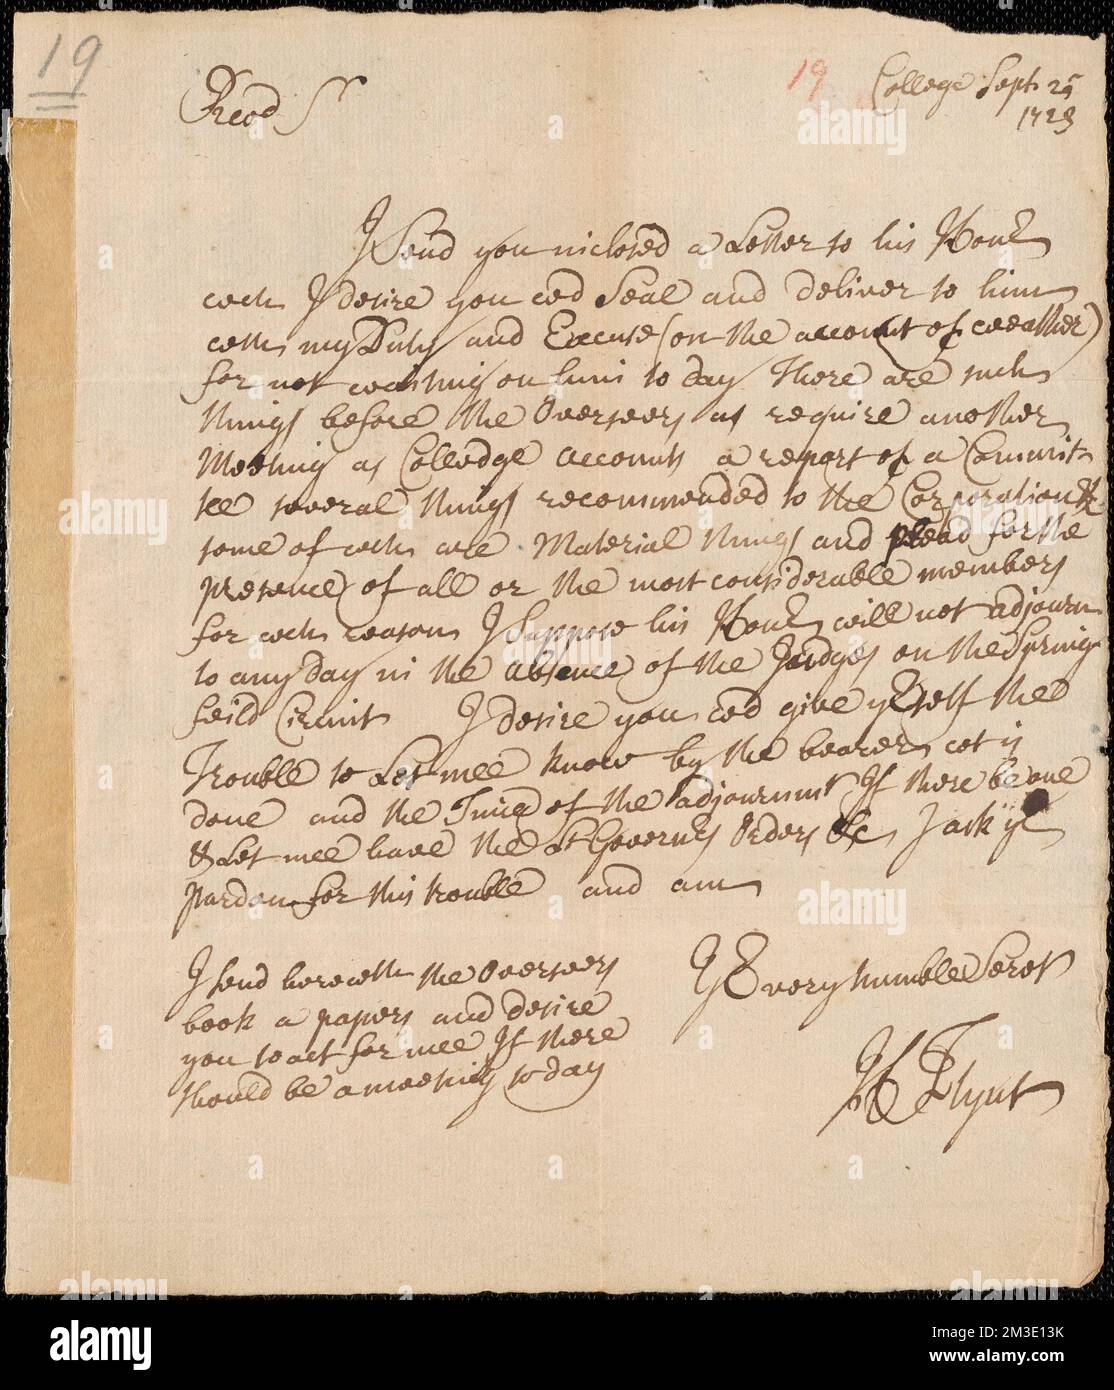 19
19
College Sept 25
1723
Revd Sr
I Send you inclosed a Letter to his Honr
wch I desire you wd Seal and deliver to him
with my Duty and Excuse (on the account of weather)
for not waiting on him to day There are such
things before the Overseers as require another
Meeting as Colledge accounts a report of a Commit-
tee several things recommended to the Corporation &c
some of wch are Material things and plead for the
presence of all or the most considerable members
for wch reason I Suppose his Honr will not adjourn
to any day in the absence of the Judges on the Spring
feild Circuit I desire you wd give yrself the
Trouble to Let mee know by the bearer wt is
done and the Time of the adjournmt If there be one
& Let mee have the Lt Governrs Orders &c I ask yr
pardon for this trouble and am
I send herewith the Overseers
book & papers and desire
you to act for mee If there
should be a meeting to day
Yr very humble Servt
H Flynt
alamy
Image ID: 2M3E13K
www.alamy.com